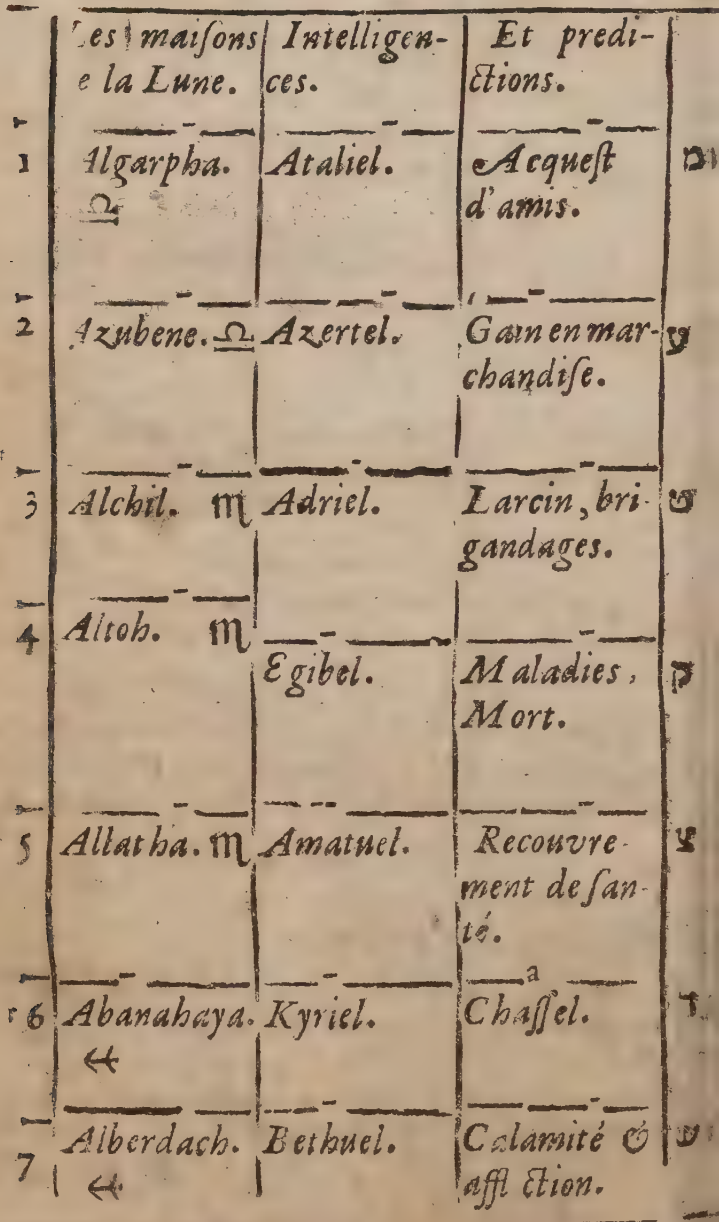 es maiſons Intelligen- Et predi-
e la Lune. ces. ctions.
1 Algarpha. Ataliel. Acqueſt מ
♎ d'amis.
2 Azubene. ♎ Azertel. Gain en mar-
chandiſe.
3 Alchil. ♏ Adriel. Larcin, bri-
gandages.
4 Altob. ♏
Egibel. Maladies, ק
Mort.
5 Allatha. ♏ Amatuel. Recouvre-
ment de ſan-
té.
6 Abanahaya. Kyriel. Chaſſe. a
♐
7 Alberdach. Bethuel. Calamité &
♐ affl ction.